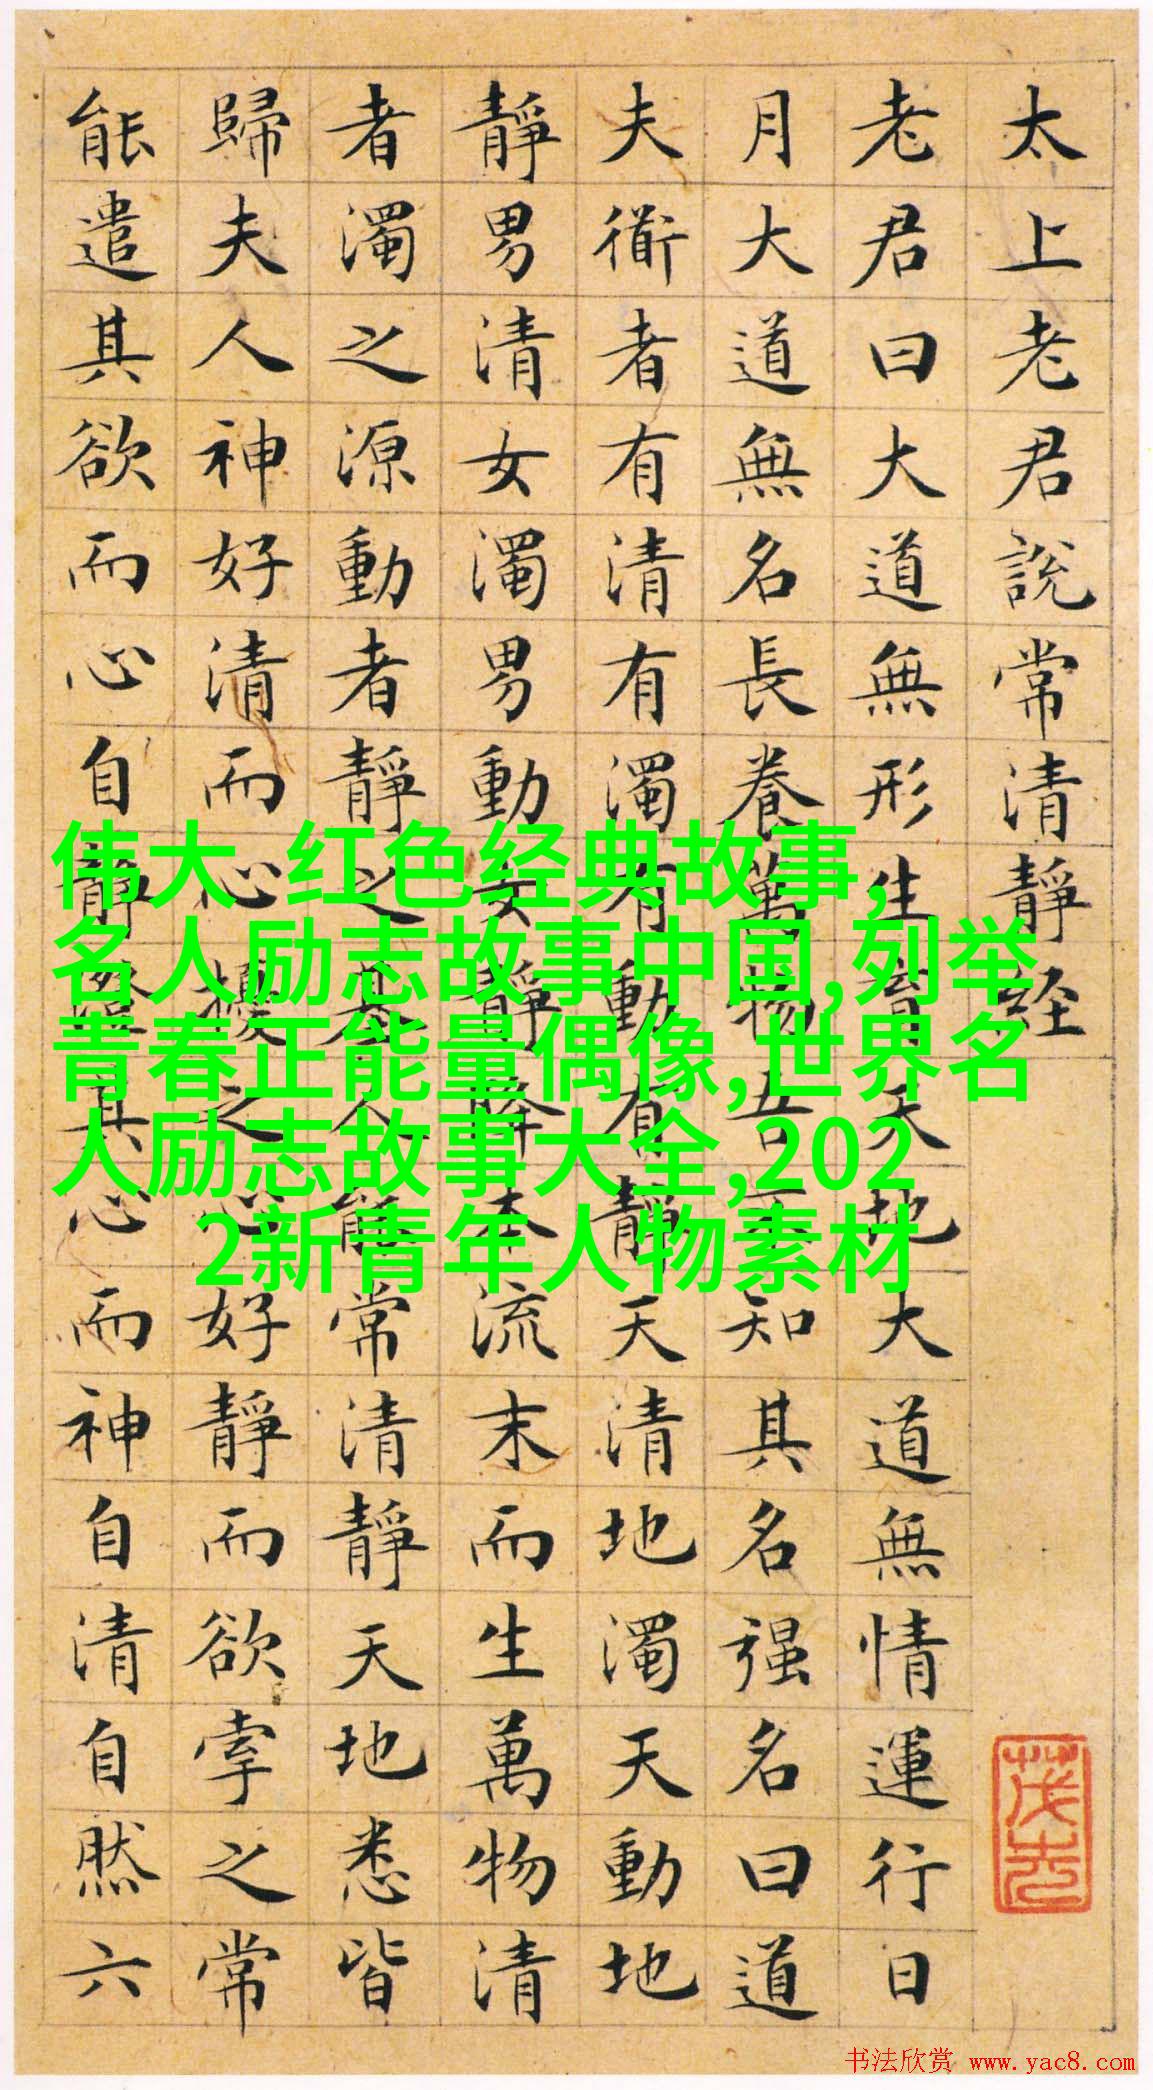 太上老君說常清靜経
老君曰大道無形生育天地大道無情運行日
月大道無名長養萬物吾不知其名强名曰道
夫衜者有清有濁有動有靜天清地濁天動地
靜男清女濁男動女靜降本流末而生萬物清
者濁之源動者靜之基人能常清靜天地悉皆
歸夫人神好清而心擾之心好靜而欲牽之常
能遣其欲而心自靜澄其心而神自清自然六
伟大 红色经典故事,
名人励志故事中国,列举
青春正能量偶像,世界名
人励志故事大全,202
2新青年人物素材
书法欣赏 www.yac8.com